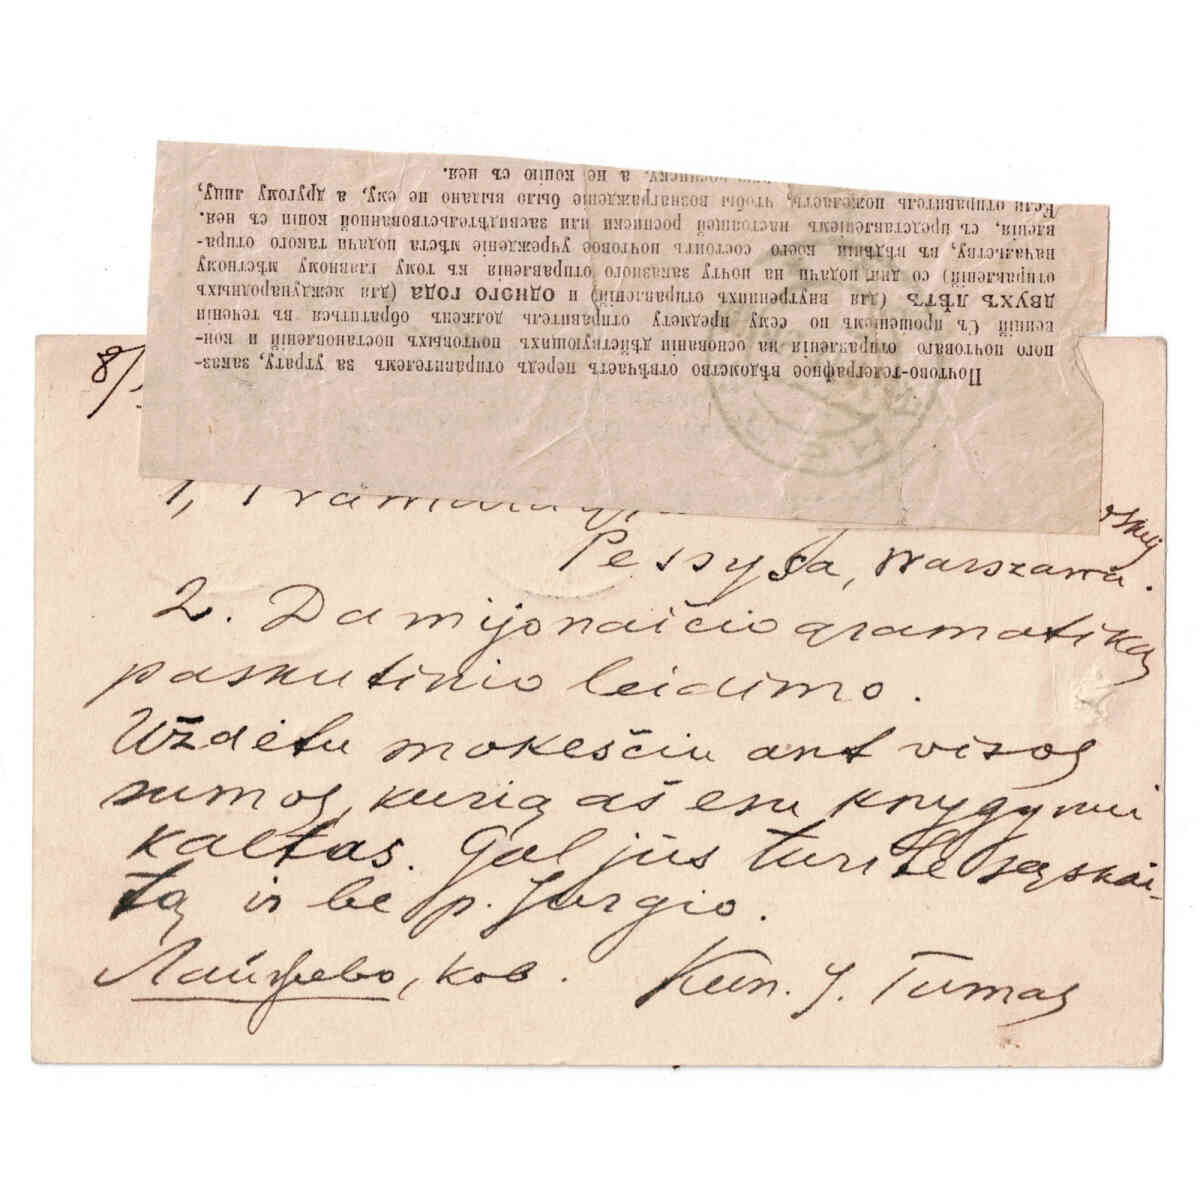 Почтово-телеграфное вѣдомство отвѣчаетъ передъ отправителемъ за утрату, заказ-
ного почтоваго отправленія на основаніи дѣйствующихъ почтовыхъ постановленій и кон-
венцій Съ прошеніемъ по сему предмету отправитель долженъ обратиться въ теченіи
двухъ лѣтъ (для внутреннихъ отправленій) и одного года (для международныхъ
отправленій) со дня подачи на почту заказного отправленія къ тому главному мѣстному
начальству, въ вѣдѣніи коего состоитъ почтовое учрежденіе мѣста подачи такого отпра-
вленія, съ представленіемъ настоящей росписки или засвидѣтельствованной копіи съ нея.
Если отправитель пожелаетъ, чтобы вознагражденіе было выдано не ему, а другому лицу,
росписку, а не копію съ нея.
8/
1,
Pessyġa, Warszawa.
2. Damijonaičio gramatiką
paskutinio leidimo.
Uždėtu mokesčiu ant visos
sumos, kurią aš esu knygynui
kaltas. Gal jūs turite sąskai-
tą ir be p. Jurgio.
Лайжево, ков. Kun. J. Tumas